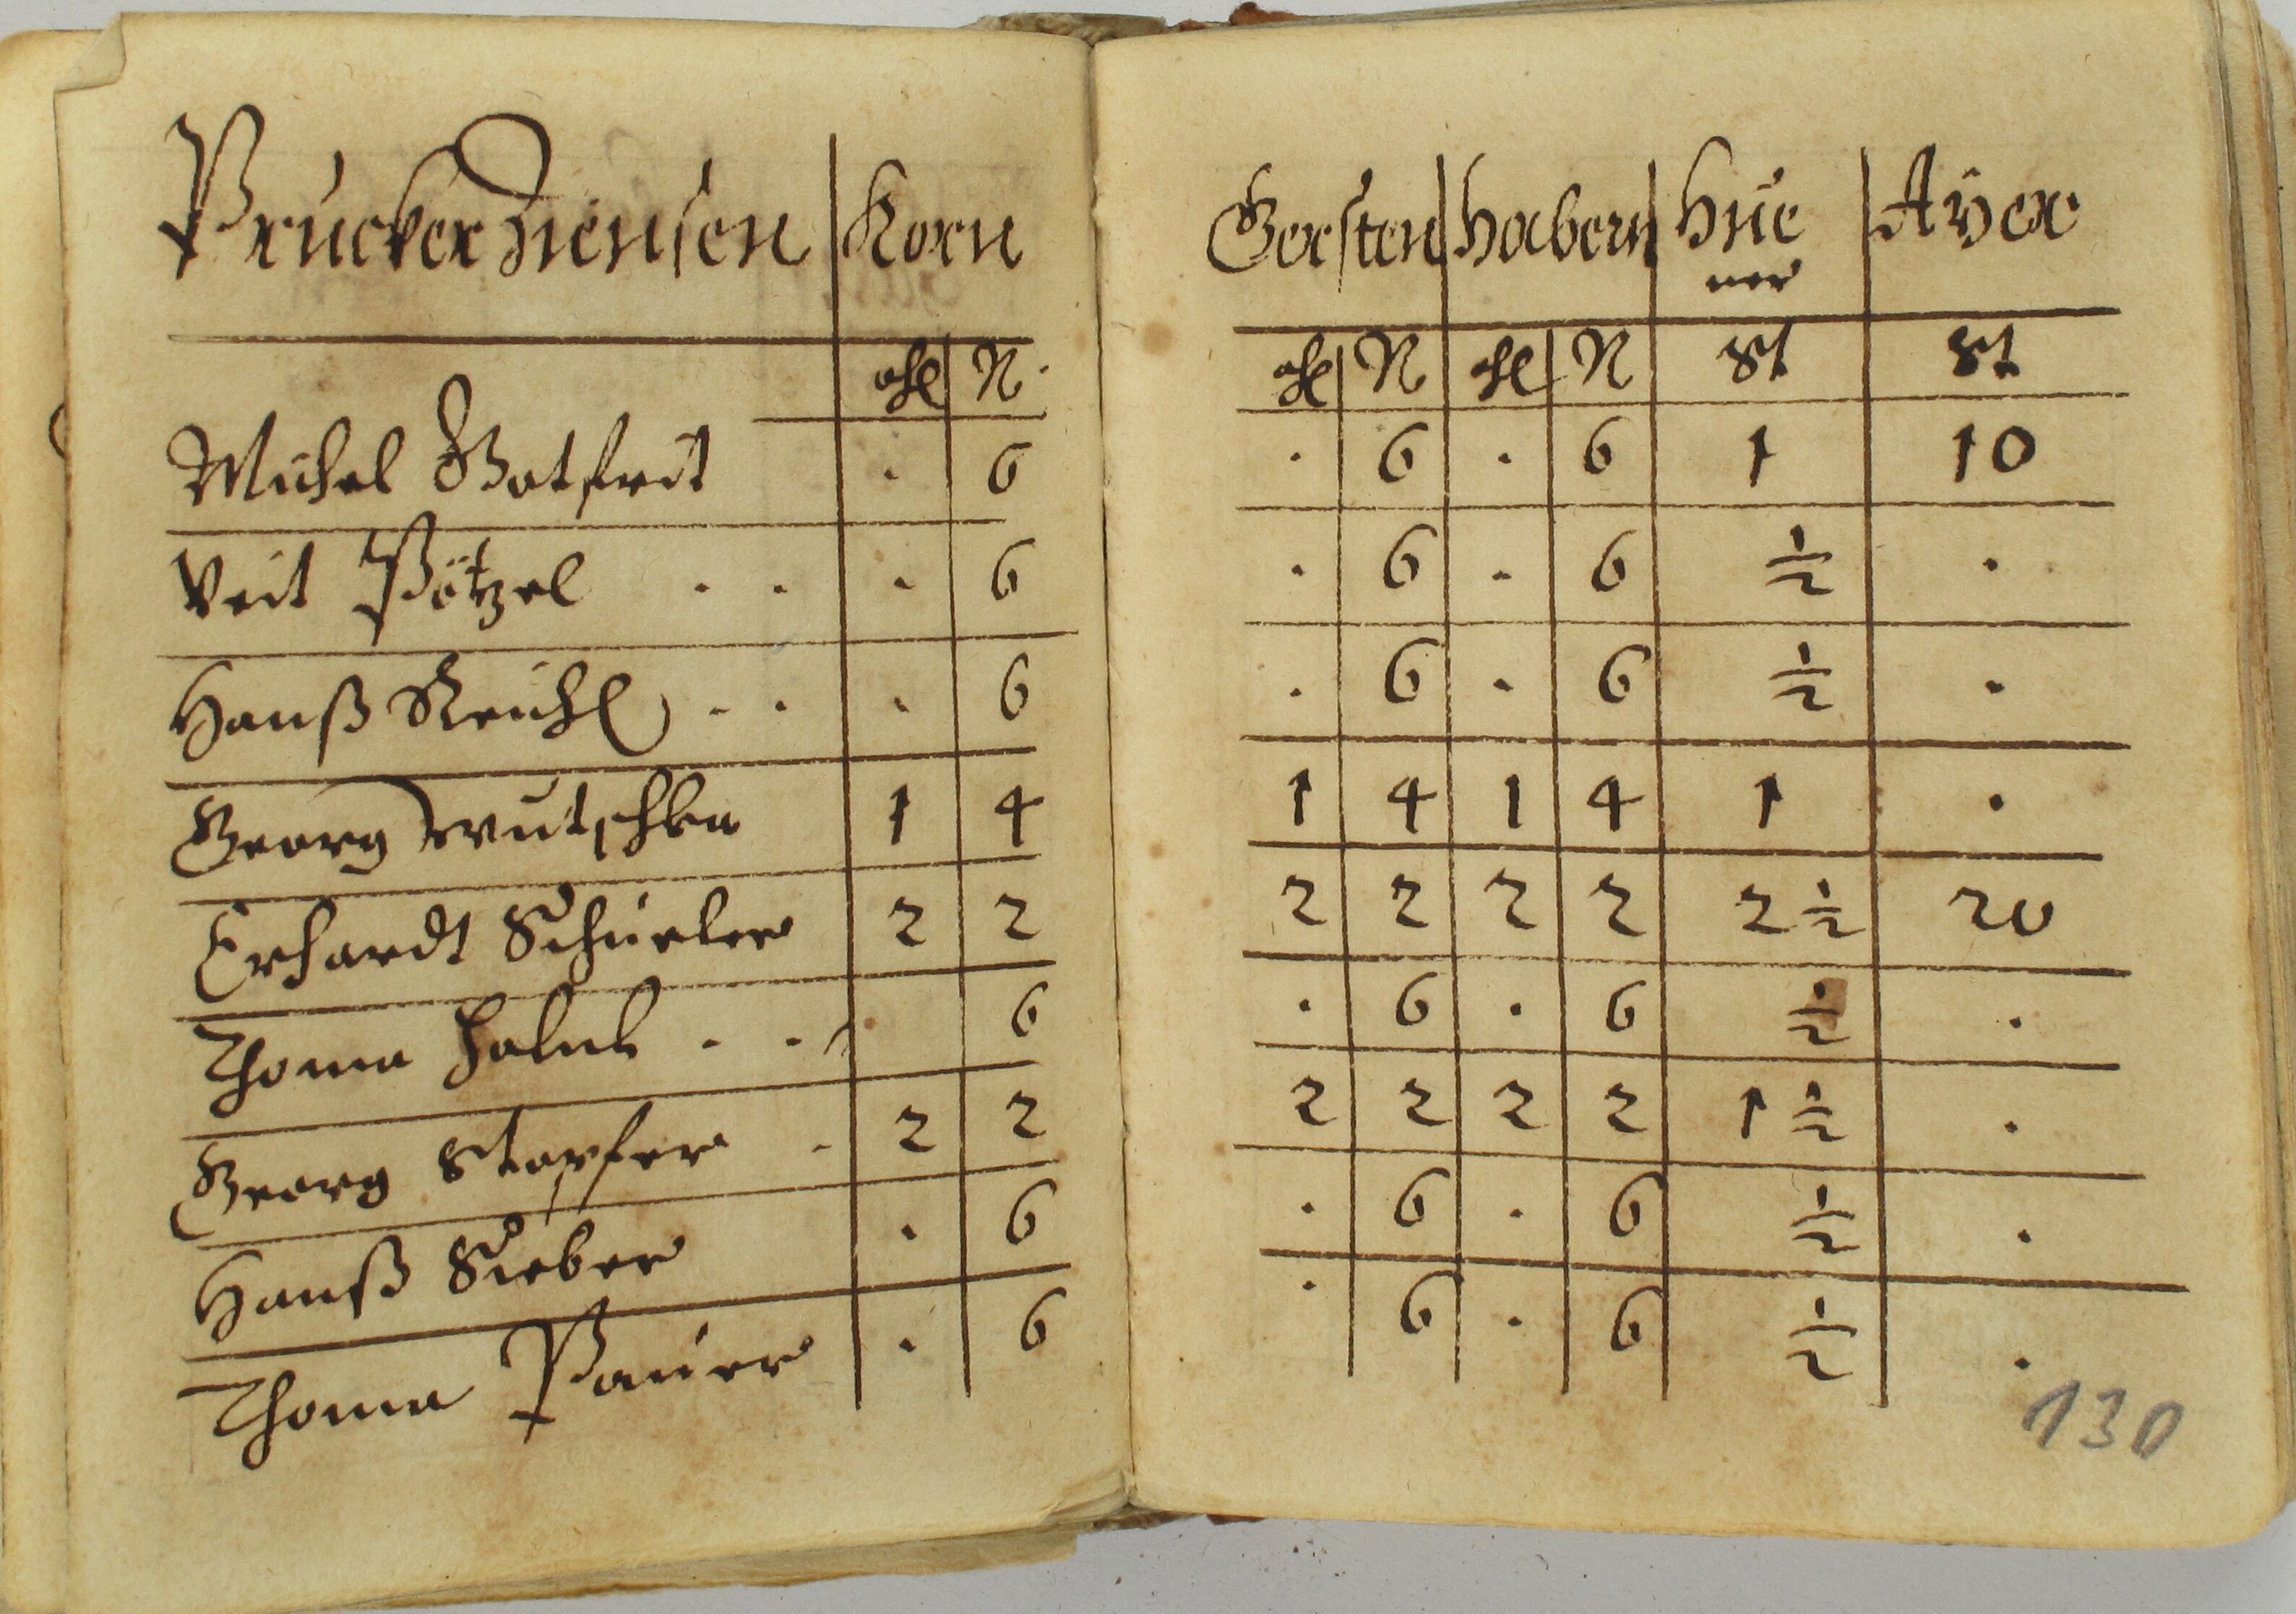 Prucker Ziensen Korn
Gersten Habern Hüe Aÿer
ner
N. N N St St
Michel Gotfrit . 6 . 6 . 6 1 10
Veit Pötzel . . . 6 . 6 . 6 ½ .
Hanß Reichl . . . 6 . 6 . 6 ½ .
Georg Wutschka 1 4 1 4 1 4 1 .
Erhardt Schüeler 2 2 2 2 2 2 2 ½ 20
Thoma . . 6 . 6 . 6 ½ .
Georg Stopfer . 2 2 2 2 2 2 1 ½ .
Hanß Sieber . 6 . 6 . 6 ½ .
Thoma Pauer . 6 . 6 . 6 ½ .
130